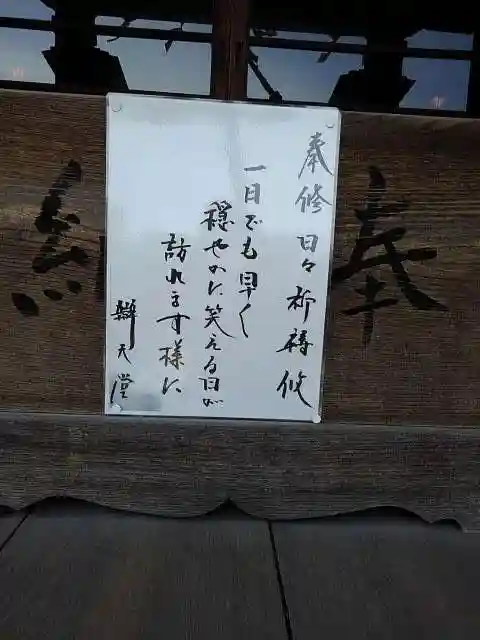 奉修 日々祈祷攸
一日でも早く
穏やかに笑える日が
訪れます様に
辯天堂
奉
納